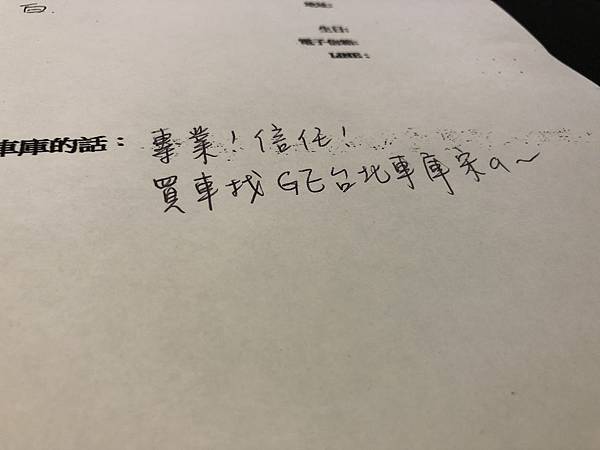 地址:
生日:
電子信箱:
LINE:
車庫的話: 專業!信任!
買車找 GE台北車庫宋a~